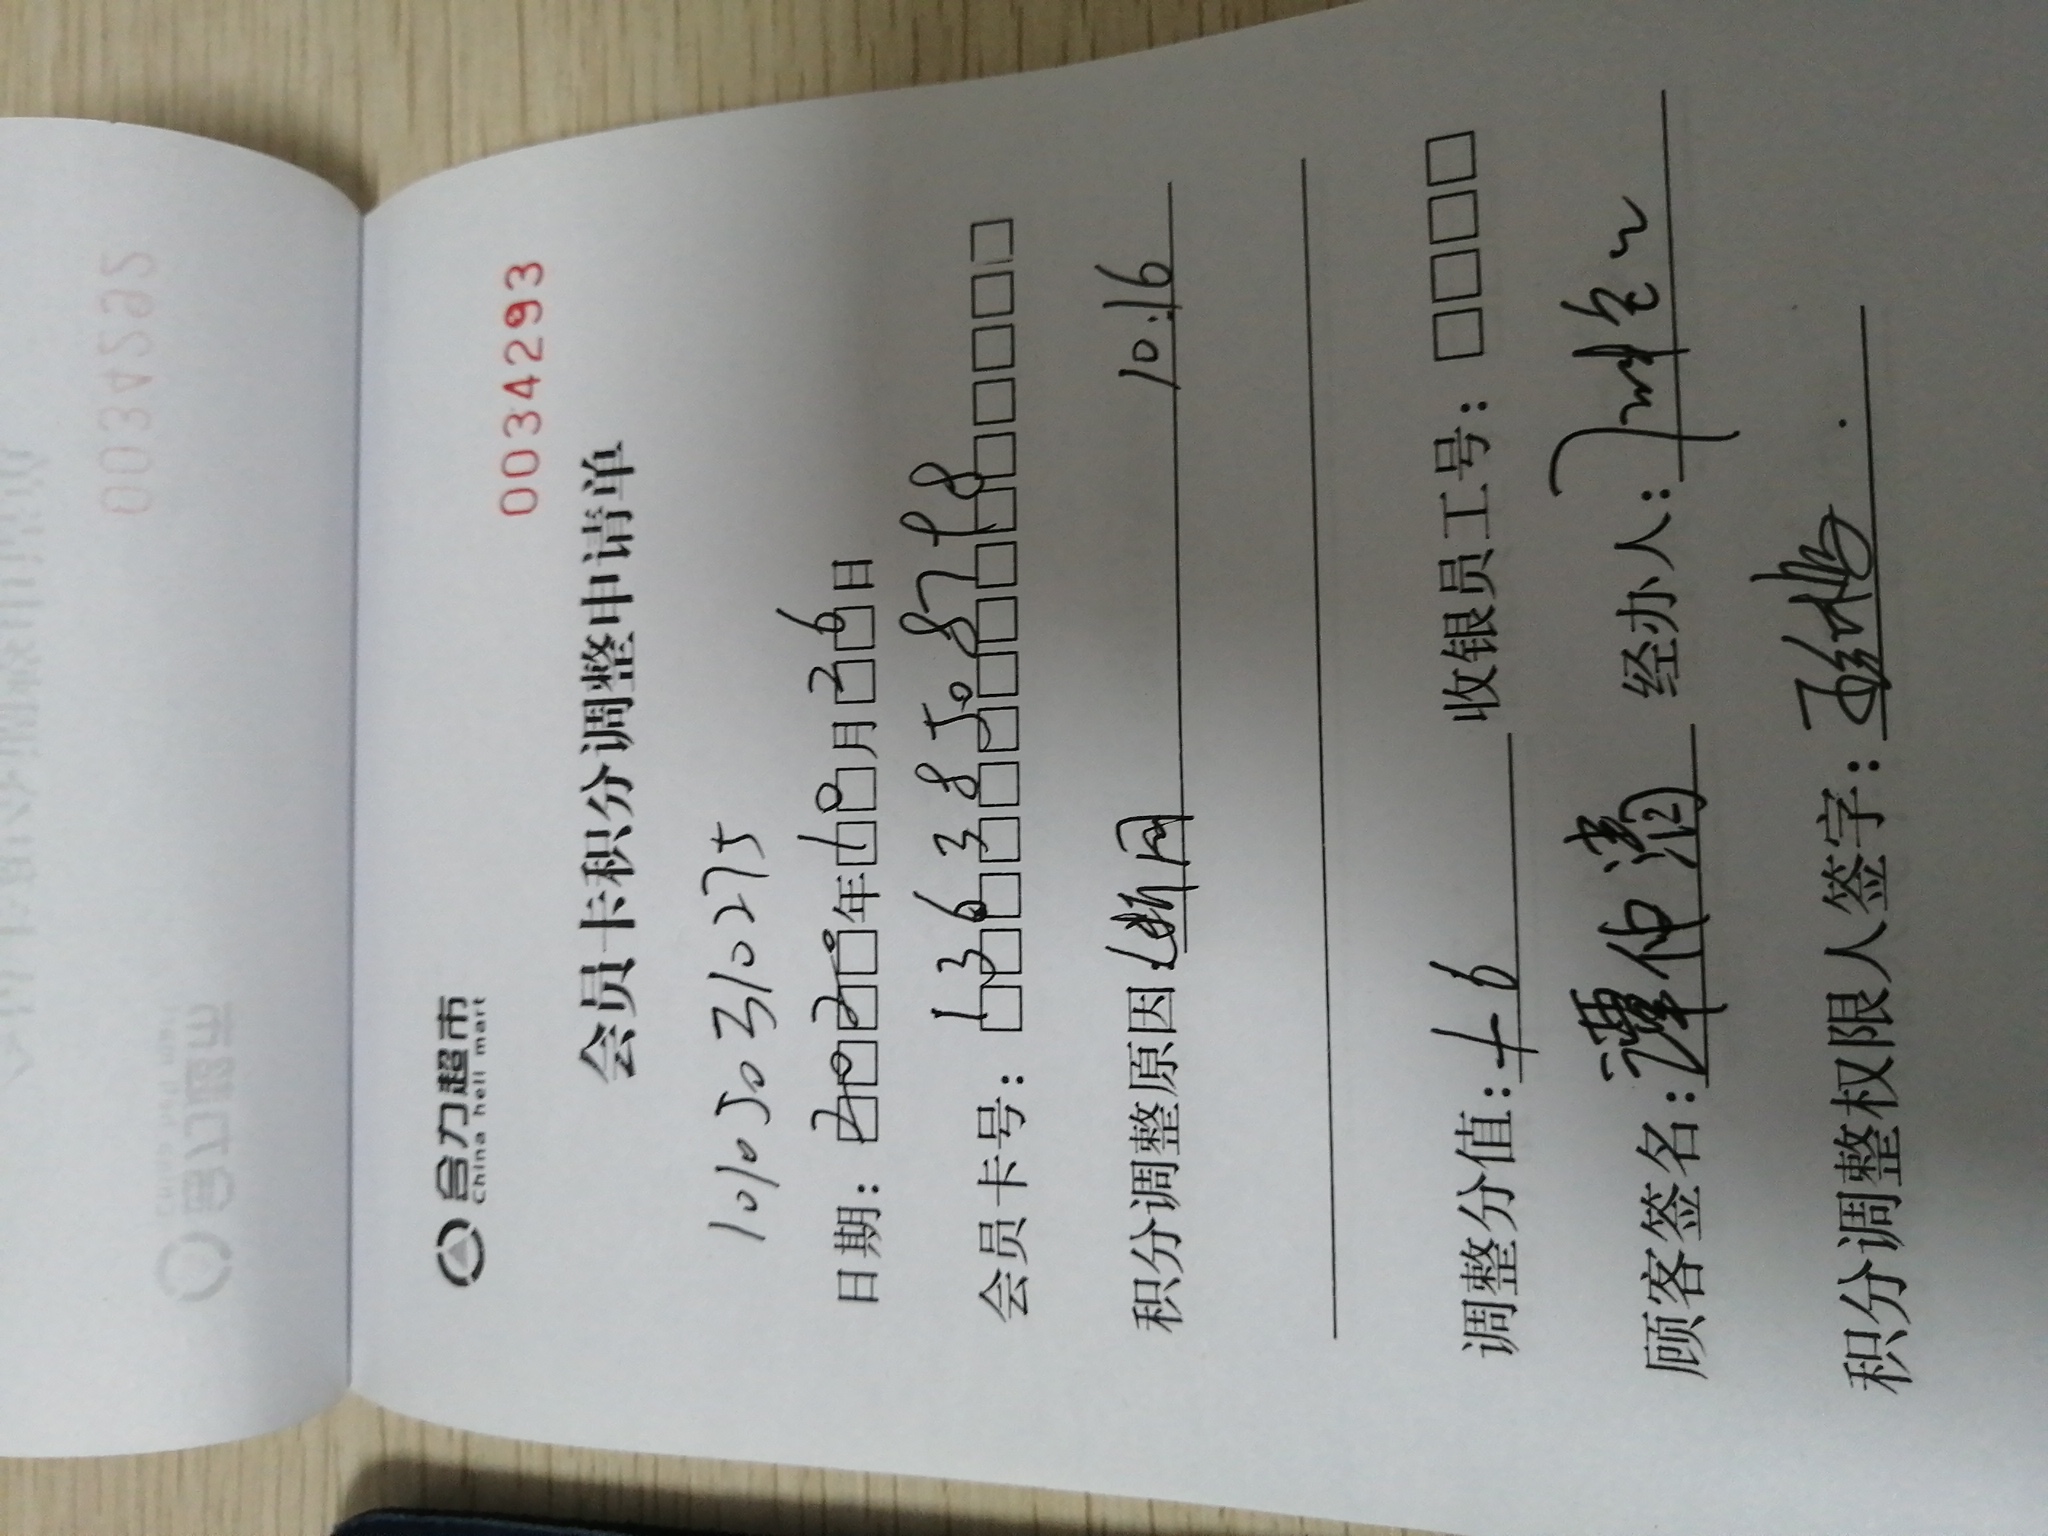 合力超市
China hell mart
0034293
会员卡积分调整申请单
101050310275
日期：2020年10月26日
会员卡号：1363850878
积分调整原因 断网 10:16
调整分值：+6 收银员工号：
顾客签名：谭仲清 经办人：
积分调整权限人签字：